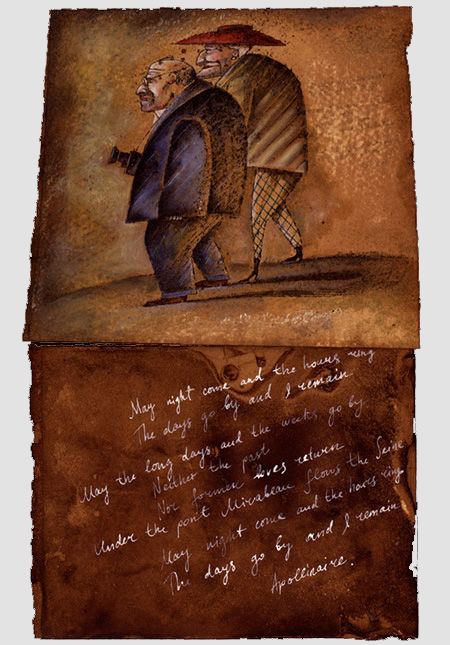 May night come and the hours ring
The days go by and I remain
May the long days and the weeks go by
Neither the past
Nor former loves return
Under the pont Mirabeau flows the Seine
May night come and the hours ring
The days go by and I remain
Apollinaire.